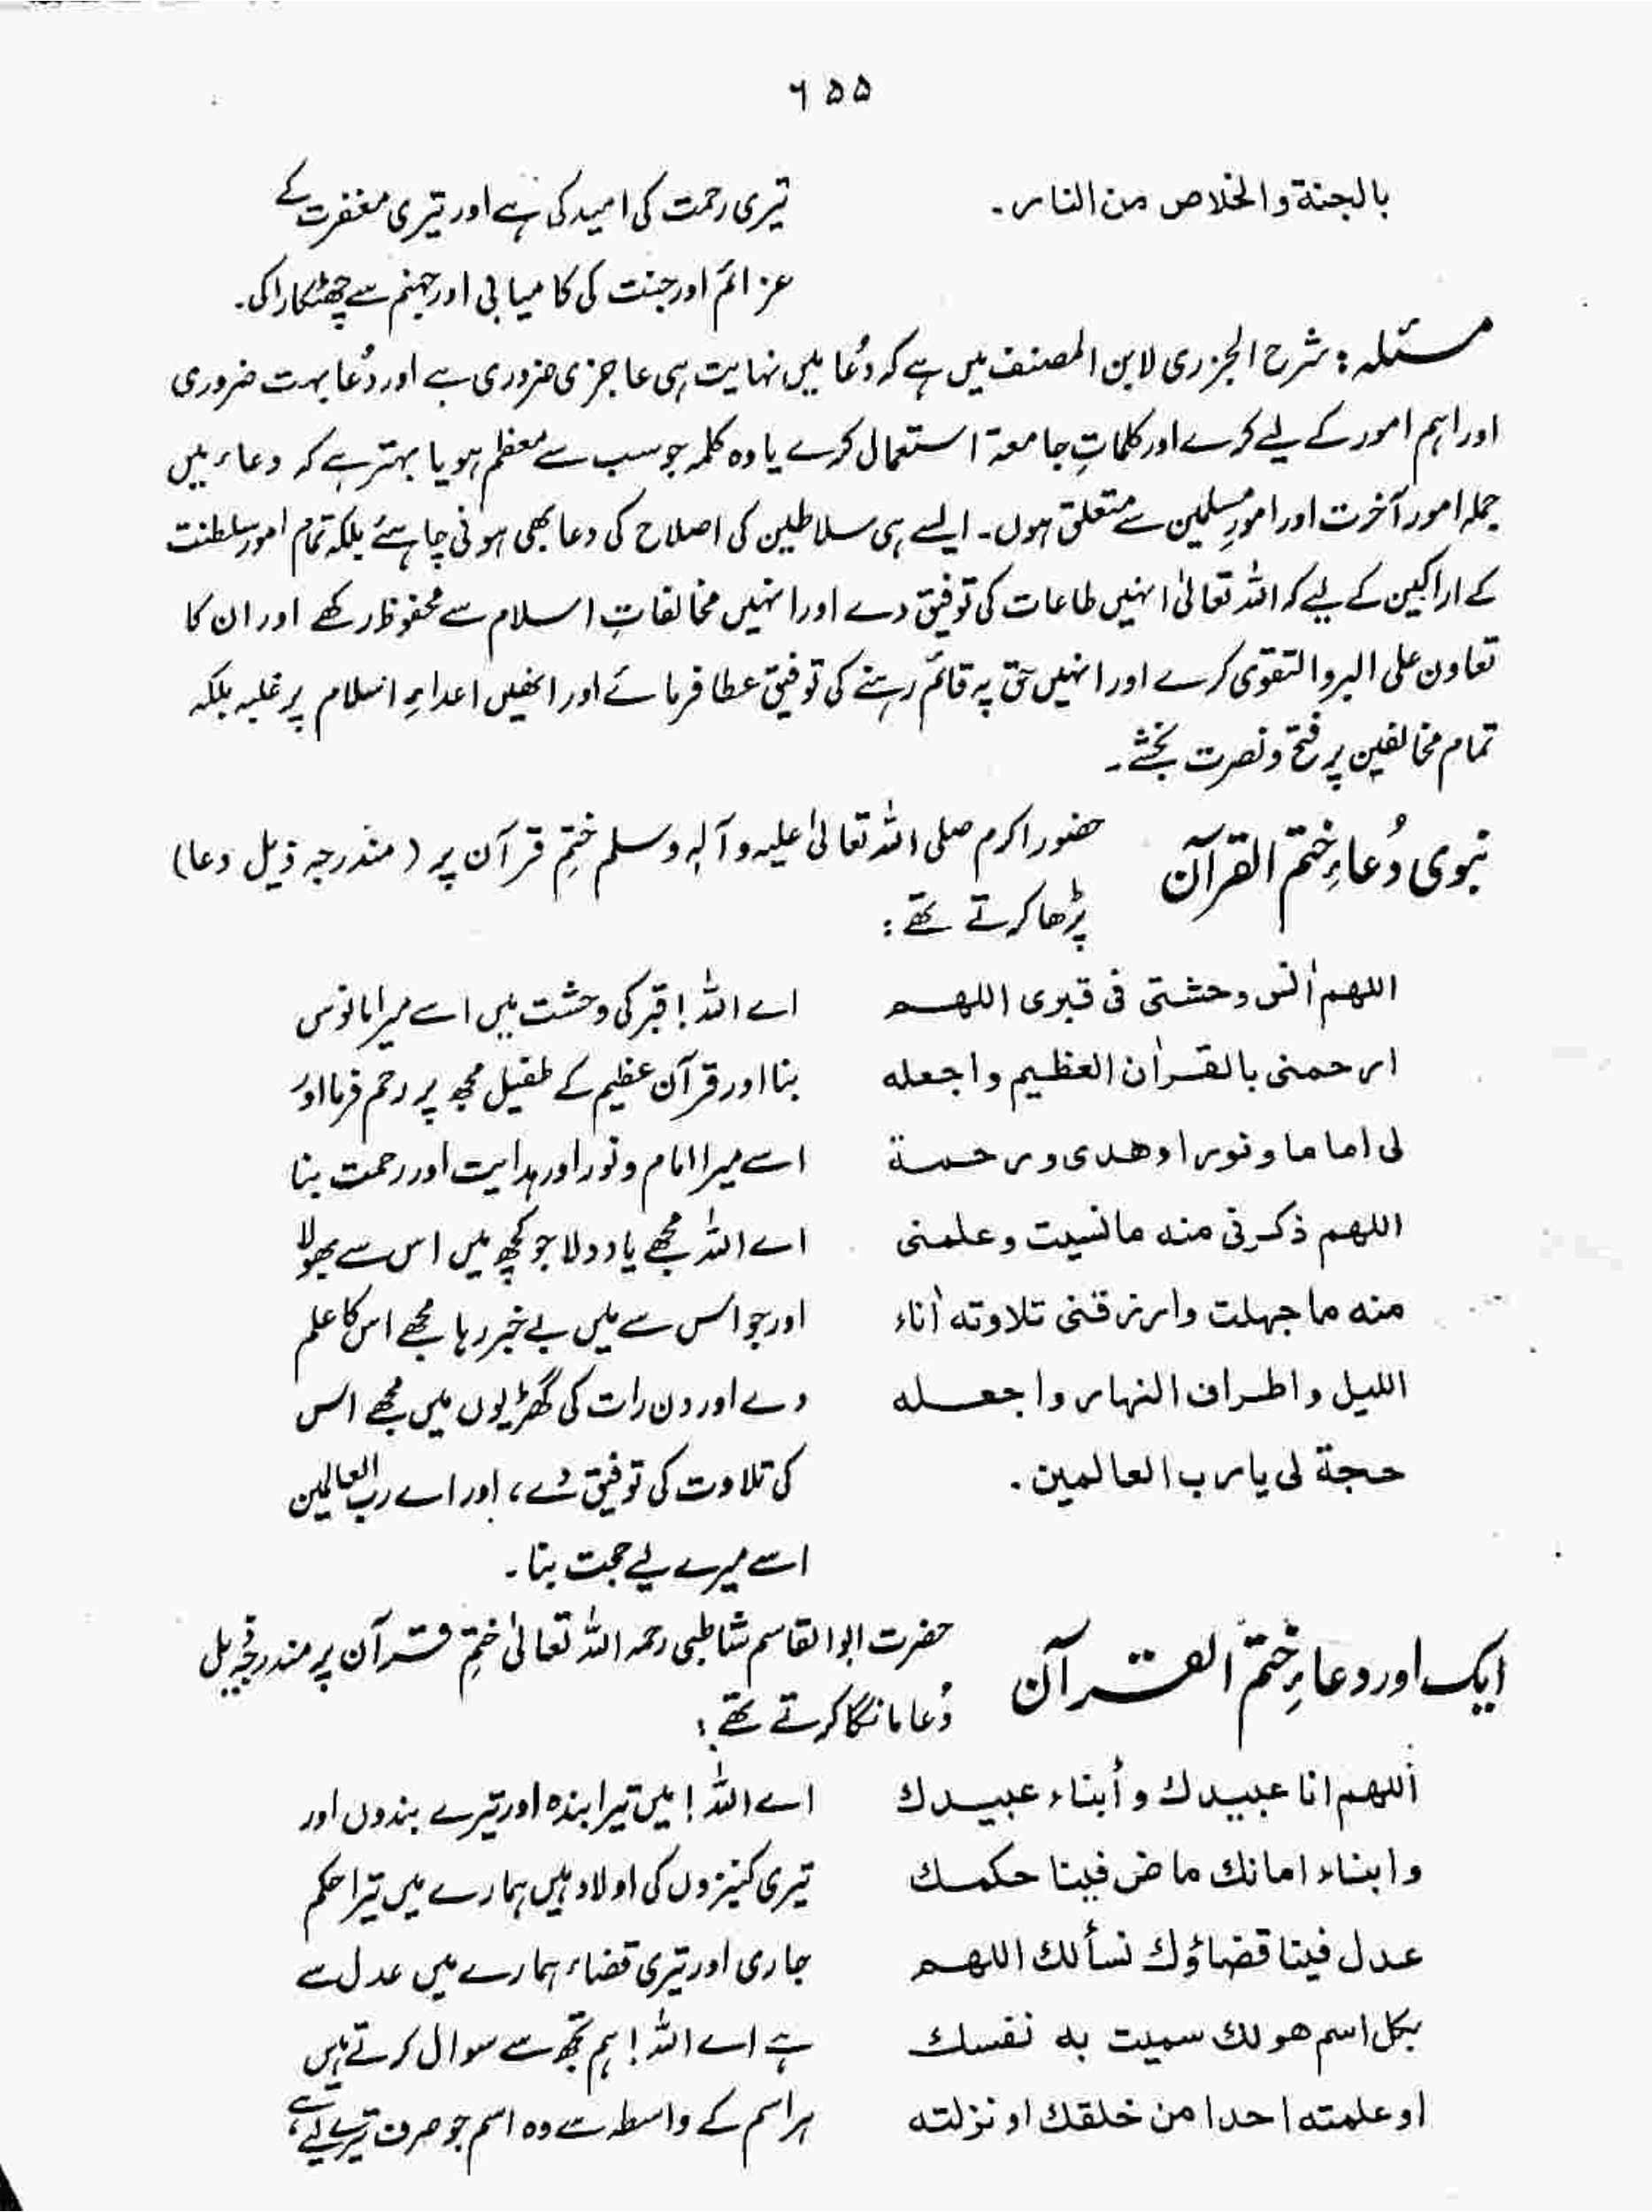 ۶۵۵
بالجنة والخلاص من النار۔
تیری رحمت کی امید کی ہے اور تیری مغفرت کے
عزائم اور جنت کی کامیابی اور جہنم سے چھٹکارا کی۔
مسئلہ : شرح الجزری لابن المصنف میں ہے کہ دُعا میں نہایت ہی عاجزی ضروری ہے اور دُعا بہت ضروری
اور اہم امور کے لیے کرے اور کلماتِ جامعۃ استعمال کرے یا وہ کلمہ جو سب سے معظم ہو یا بہتر ہے کہ دعاء میں
جملہ امور آخرت اور امورِ مسلمین سے متعلق ہوں۔ ایسے ہی سلاطین کی اصلاح کی دعا بھی ہونی چاہئے بلکہ تمام امور سلطنت
کے اراکین کے لیے کہ اللہ تعالیٰ انہیں طاعات کی توفیق دے اور انہیں مخالفاتِ اسلام سے محفوظ رکھے اور ان کا
تعاون علی البر والتقوی کرے اور انہیں حق پہ قائم رہنے کی توفیق عطا فرمائے اور انھیں اعداءِ اسلام پر غلبہ بلکہ
تمام مخالفین پر فتح و نصرت بخشے۔
نبوی دُعاءِ ختم القرآن
حضور اکرم صلی اللہ تعالیٰ علیہ و آلہ وسلم ختمِ قرآن پر (مندرجہ ذیل دعا)
پڑھا کرتے تھے :
اللهم اٰنس وحشتی فی قبری اللهم
ارحمنی بالقراٰن العظیم واجعله
لی اماما ونورا وهدی ورحمة
اللهم ذکرنی منه مانسیت وعلمنی
منه ما جهلت وارزقنی تلاوته اٰناء
اللیل واطراف النهار واجعله
حجة لی یا رب العالمین۔
اے اللہ! قبر کی وحشت میں اسے میرا مانوس
بنا اور قرآن عظیم کے طفیل مجھ پر رحم فرما اور
اسے میرا امام و نور اور ہدایت اور رحمت بنا
اے اللہ مجھے یاد دلا جو کچھ میں اس سے بھولا
اور جو اس سے میں بے خبر رہا مجھے اس کا علم
دے اور دن رات کی گھڑیوں میں مجھے اس
کی تلاوت کی توفیق دے، اور اے رب العالمین
اسے میرے لیے حجت بنا۔
ایک اور دعاءِ ختم القرآن
حضرت ابوالقاسم شاطبی رحمہ اللہ تعالیٰ ختمِ قرآن پر مندرجہ ذیل
دُعا مانگا کرتے تھے :
أللهم انا عبیدك وأبناء عبیدك
وابناء امائك ماض فینا حکمك
عدل فینا قضاؤك نسألك اللهم
بکل اسم هو لك سمیت به نفسك
او علمته احدا من خلقك او نزلته
اے اللہ! میں تیرا بندہ اور تیرے بندوں اور
تیری کنیزوں کی اولاد ہیں ہمارے میں تیرا حکم
جاری اور تیری قضاء ہمارے میں عدل سے
ہے اے اللہ! ہم تجھ سے سوال کرتے ہیں
ہر اسم کے واسطہ سے وہ اسم جو صرف تیرے لیے ہے